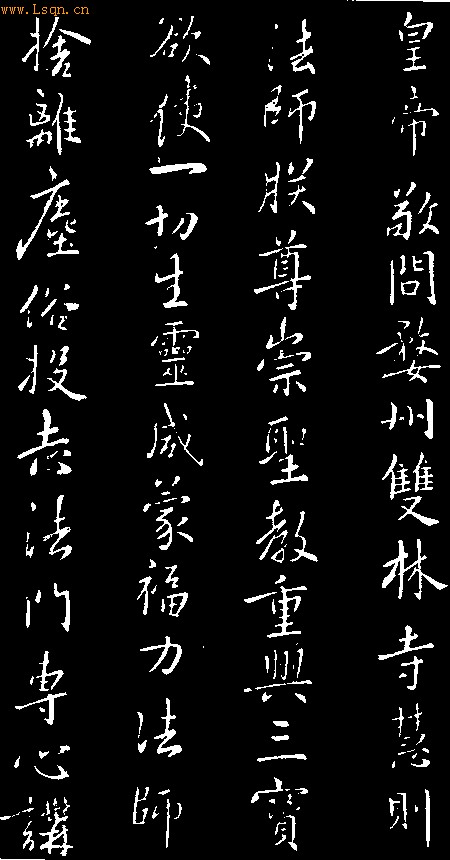 www.Lsqn.cn
皇帝敬問婺州雙林寺慧則
法師朕尊崇聖教重興三寶
欲使一切生靈咸蒙福力法師
捨離塵俗投志法門專心講